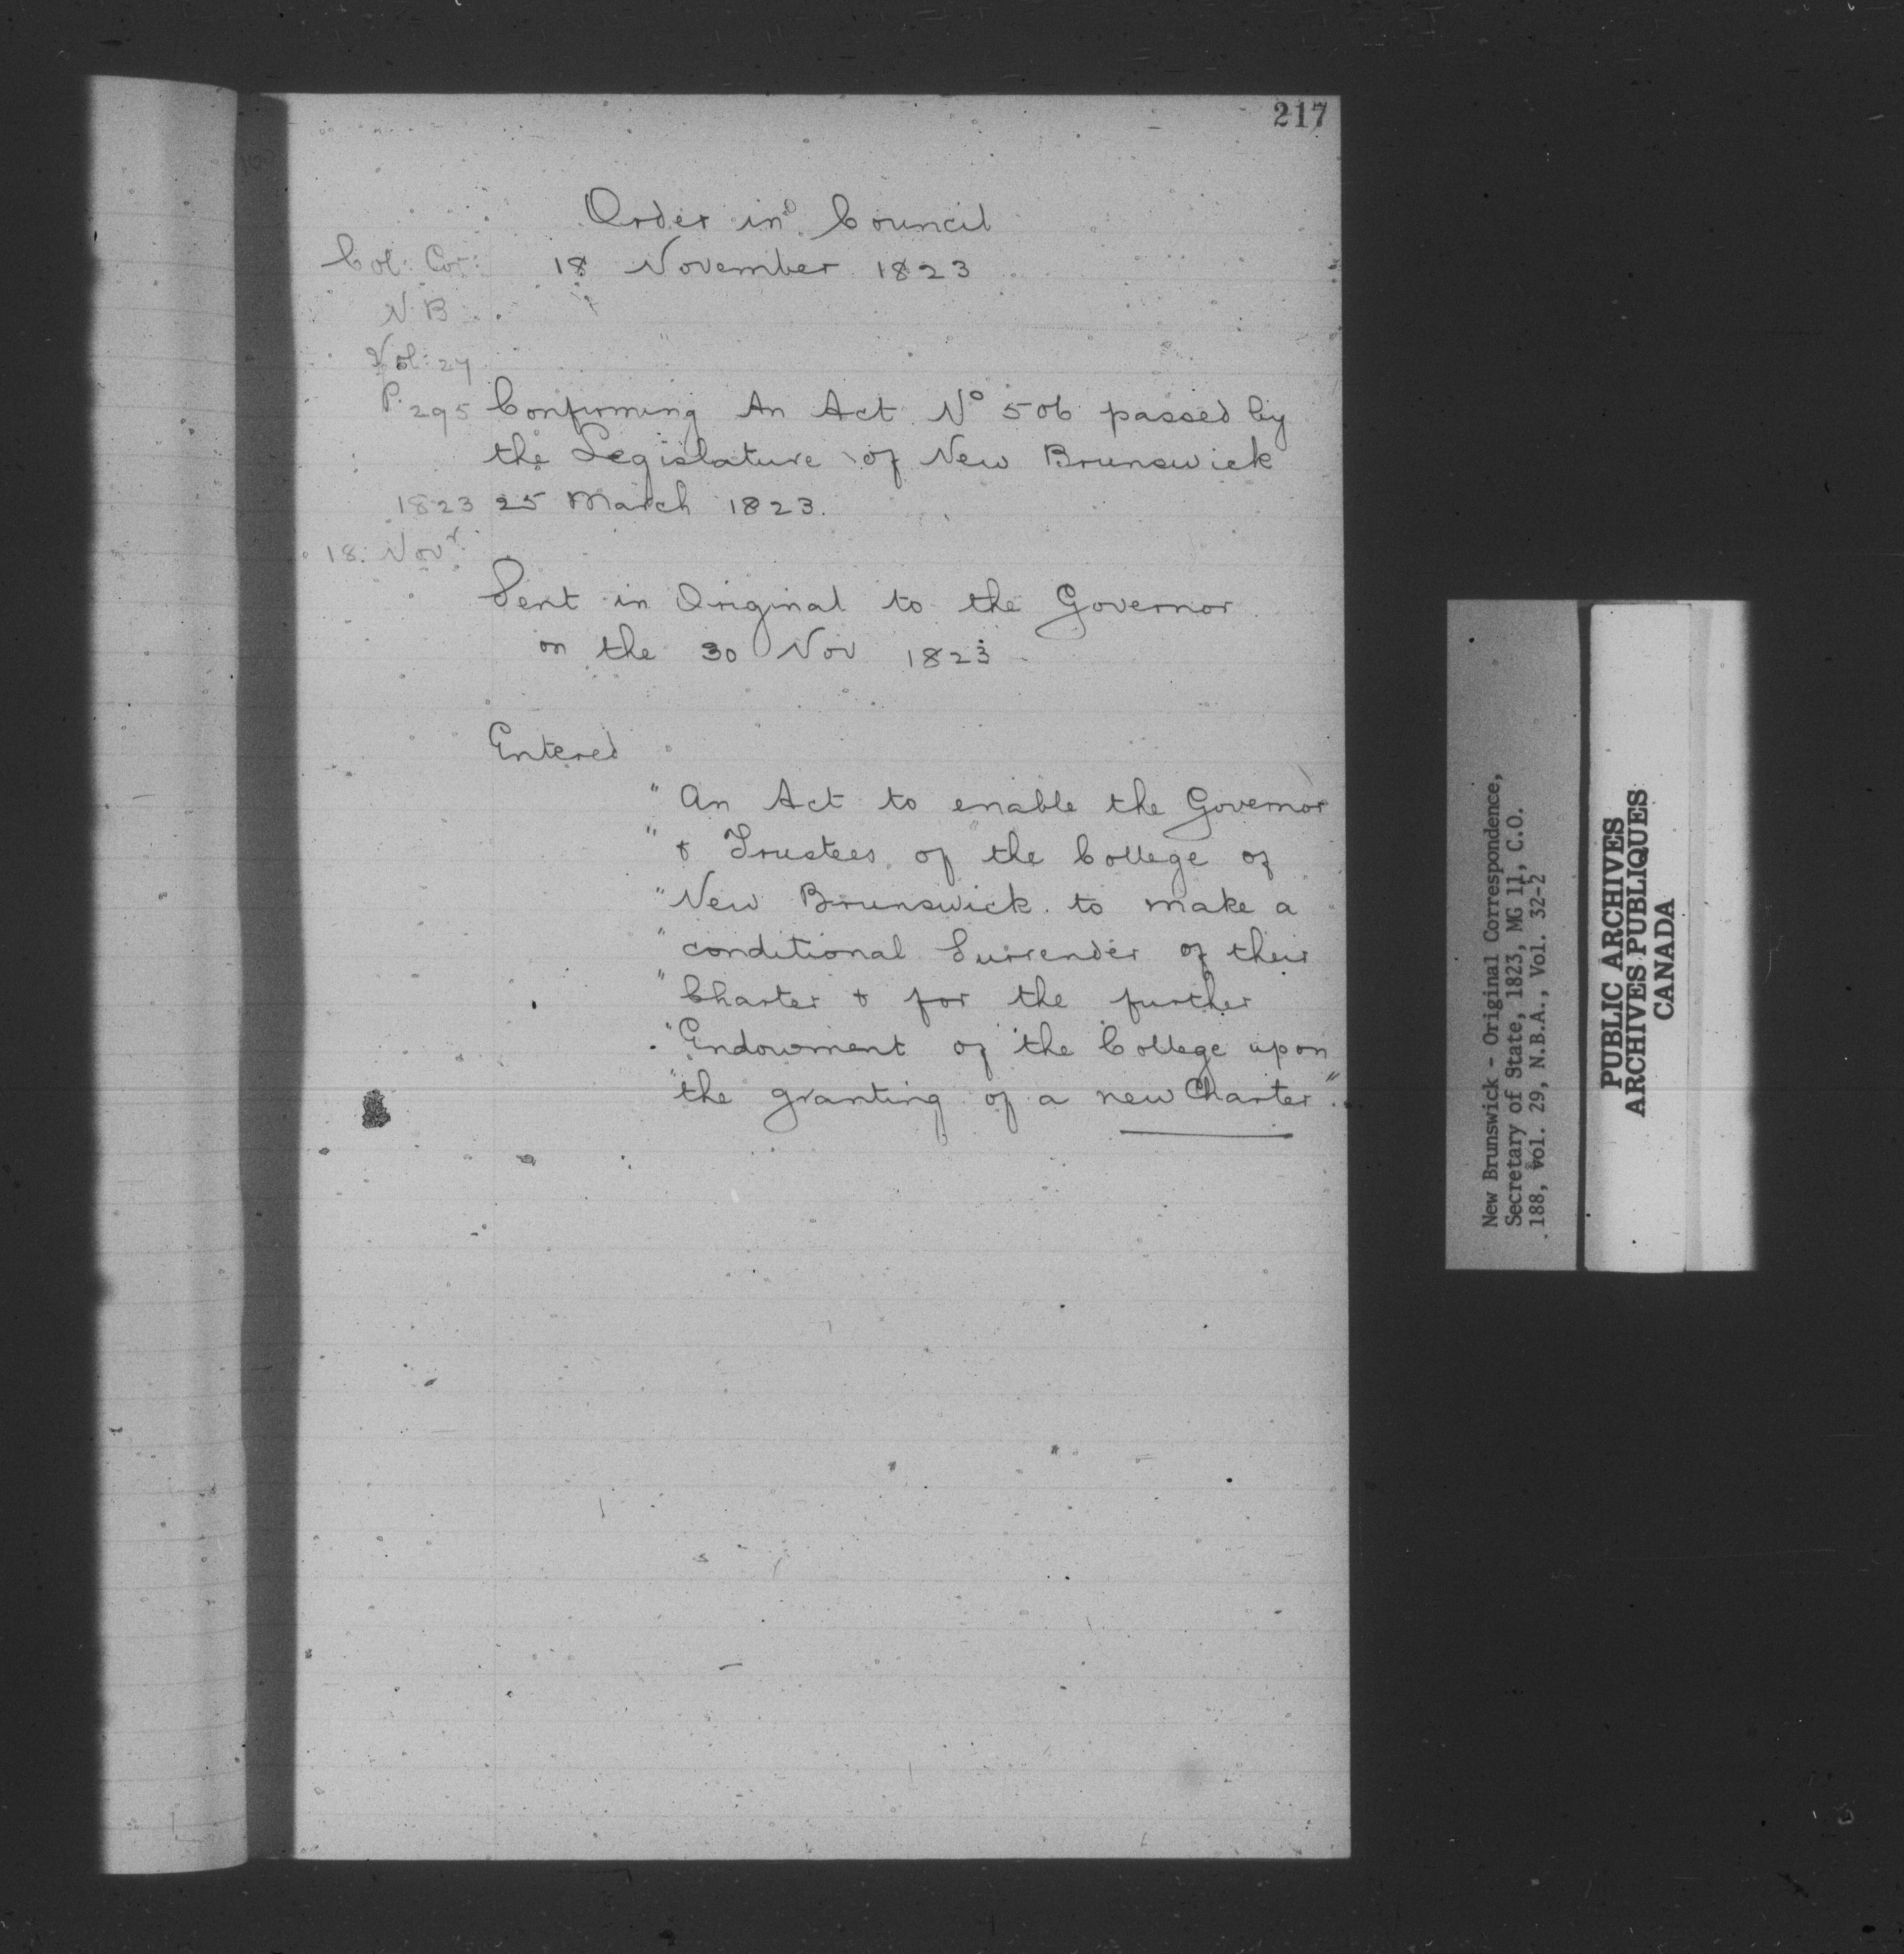 217
Order in Council
Col: Cor: 18 November 1823
N.B
Vol: 27
P. 295 Confirming An Act No 506 passed by
the Legislature of New Brunswick
1823 25 March 1823.
18. Novr.
Sent in Original to the Governor
on the 30 Nov 1823
Entered
" An Act to enable the Governor
" & Trustees of the College of
" New Brunswick to make a
" conditional Surrender of their
" Charter & for the further
" Endowment of the College upon
" the granting of a new Charter."
New Brunswick - Original Correspondence,
Secretary of State, 1823, MG 11, C.O.
188, vol. 29, N.B.A., Vol. 32-2
PUBLIC ARCHIVES
ARCHIVES PUBLIQUES
CANADA